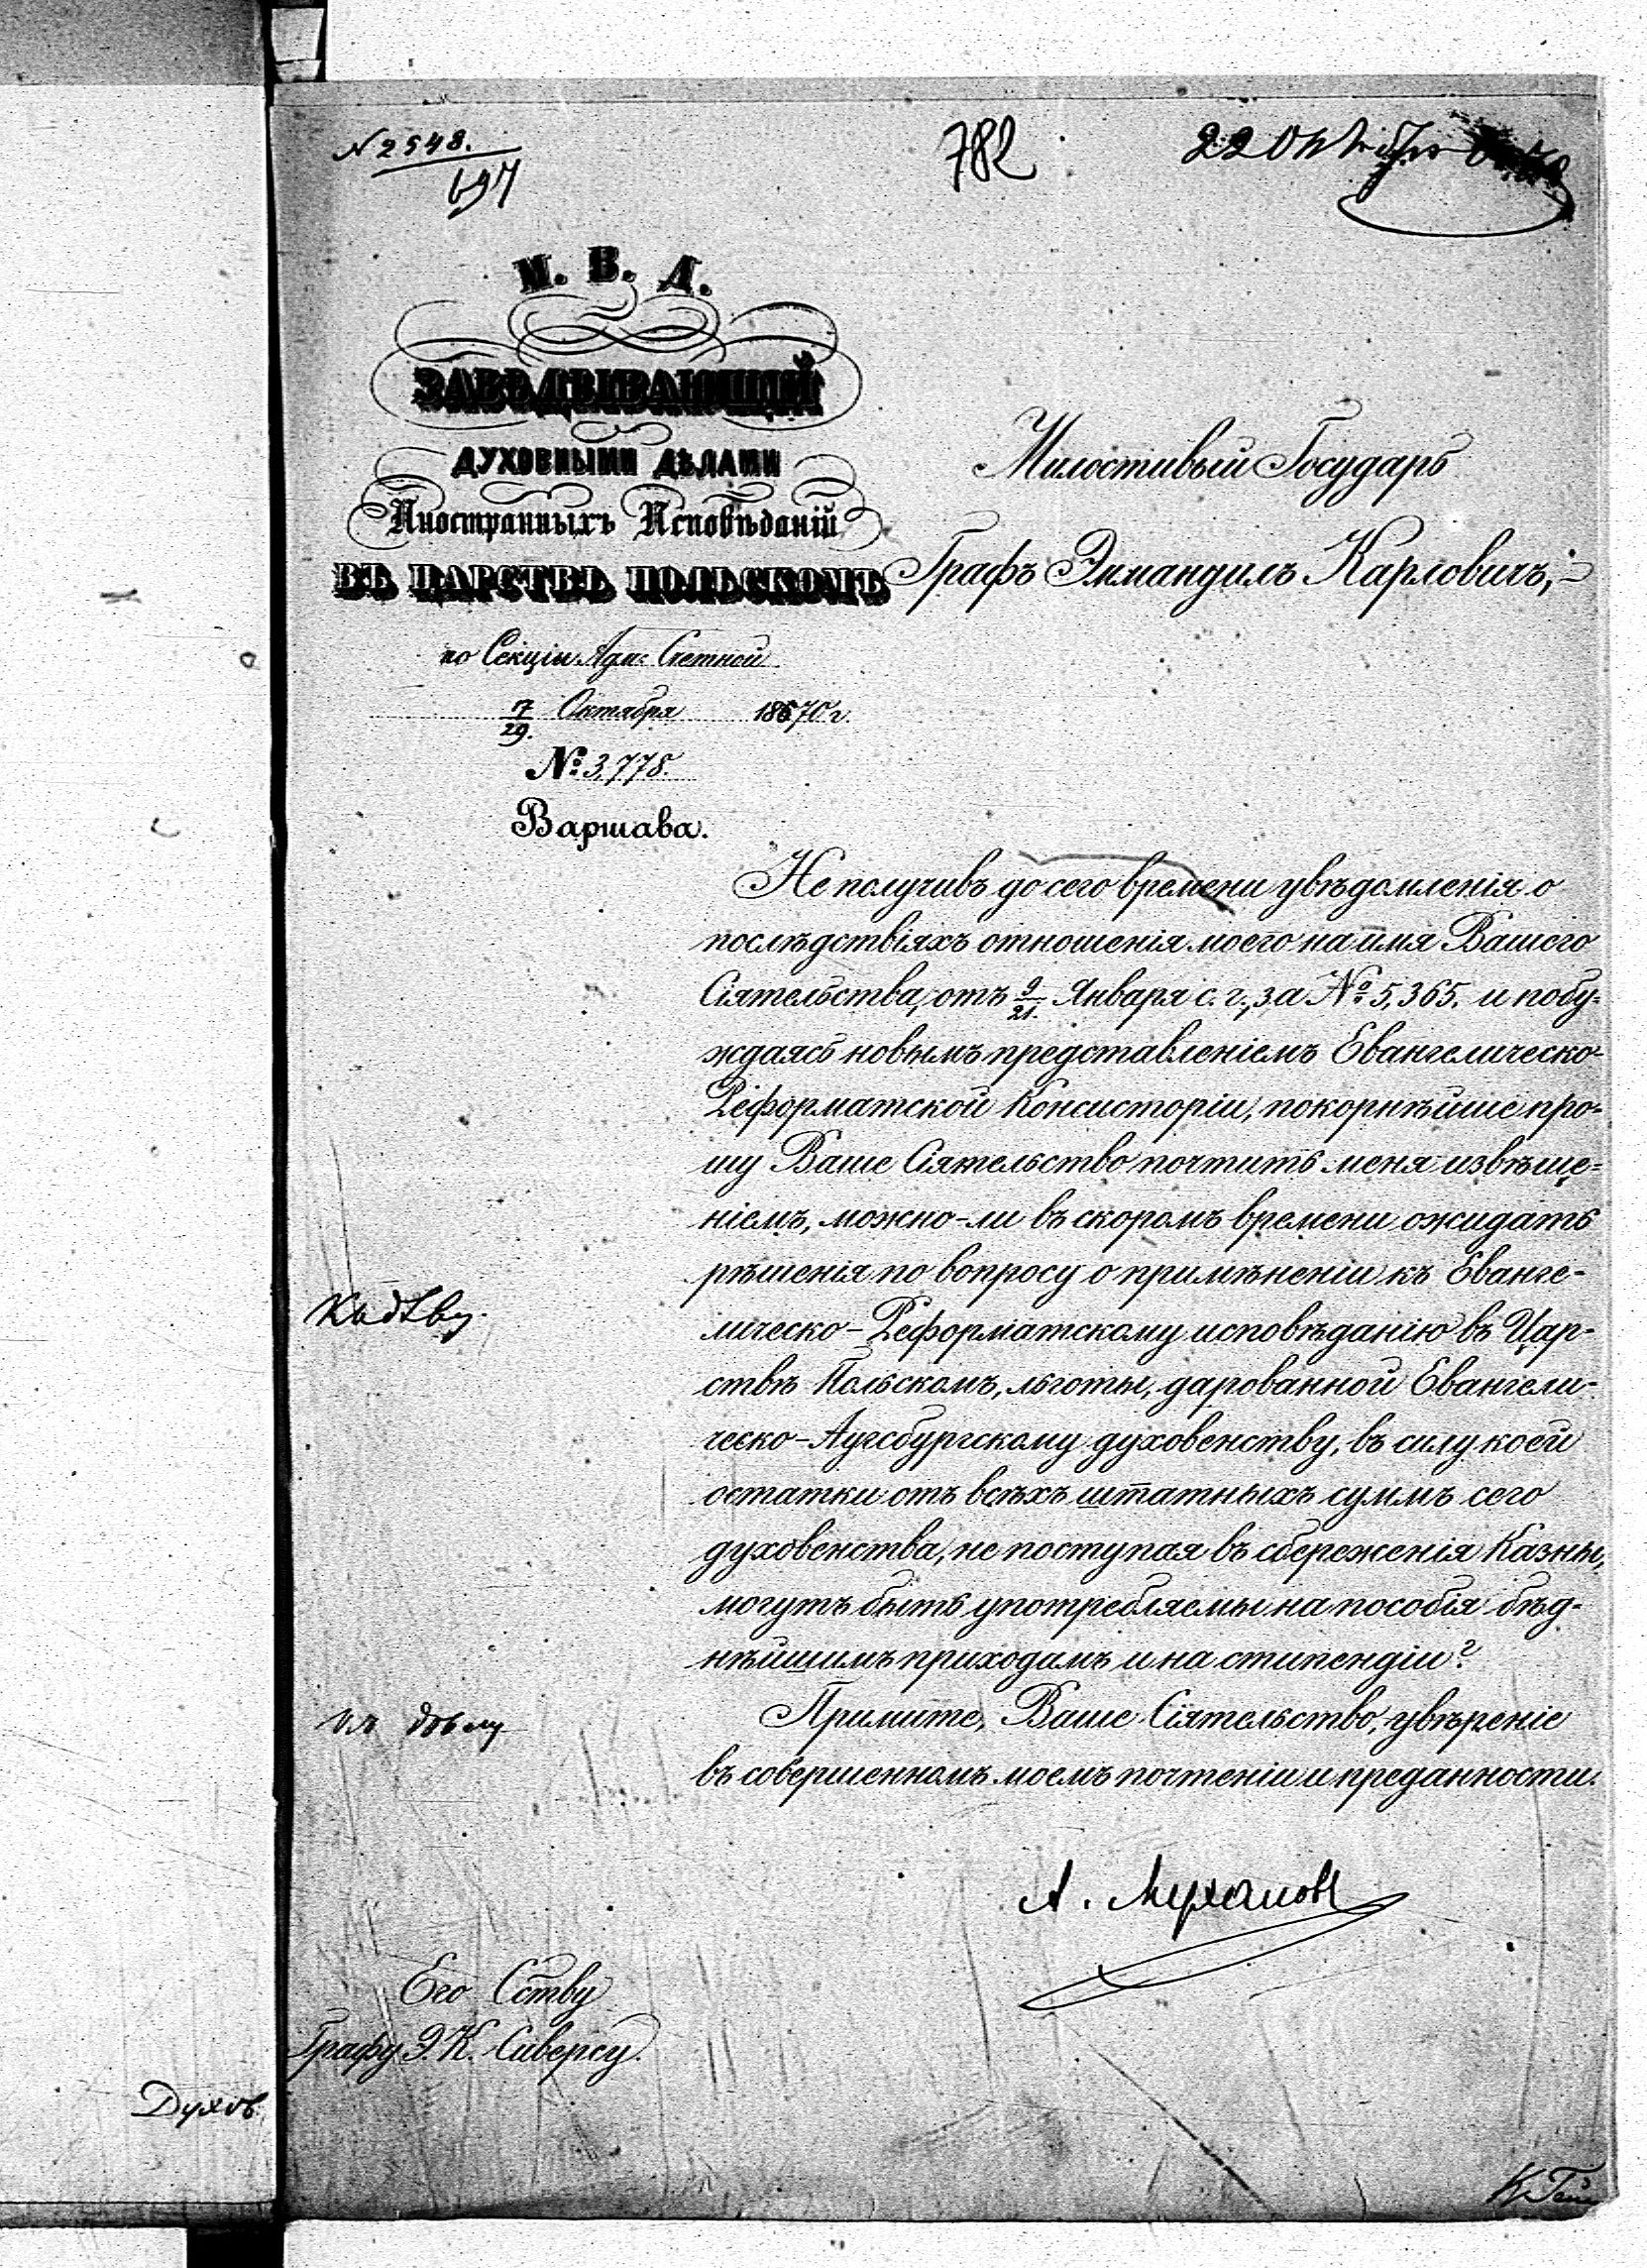 N 2548.
697
782
22 Октября
М. В. Д.
ЗАВѢДЫВАЮЩІЙ
ДУХОВНЫМИ ДѢЛАМИ
Иностранныхъ Исповѣданій
ВЪ ЦАРСТВѢ ПОЛЬСКОМЪ
по Секціи Адм: Счетной
17/29. Октября 1870 г.
№ 3,778.
Варшава.
Милостивый Государь
Графъ Эммануилъ Карловичъ,
Не получивъ до сего времени увѣдомленія о
послѣдствіяхъ отношенія моего на имя Вашего
Сіятельства, отъ 9/21. Января с. г., за № 5,365. и побу-
ждаясь новымъ представленіемъ Евангелическо-
Реформатской Консисторіи, покорнѣйше про-
шу Ваше Сіятельство почтить меня извѣще-
ніемъ, можно-ли въ скоромъ времени ожидать
рѣшенія по вопросу о примѣненіи къ Еванге-
лическо-Реформатскому исповѣданію въ Цар-
ствѣ Польскомъ, льготы, дарованной Евангели-
ческо-Аугсбургскому духовенству, въ силу коей
остатки отъ всѣхъ штатныхъ суммъ сего
духовенства, не поступая въ сбереженія Казны,
могутъ быть употребляемы на пособія бѣд-
нѣйшимъ приходамъ и на стипендіи?
Примите, Ваше Сіятельство, увѣреніе
въ совершенномъ моемъ почтеніи и преданности.
къ дѣлу
А. Мухановъ
Его Ству
Графу Э. К. Сиверсу.
Духов.